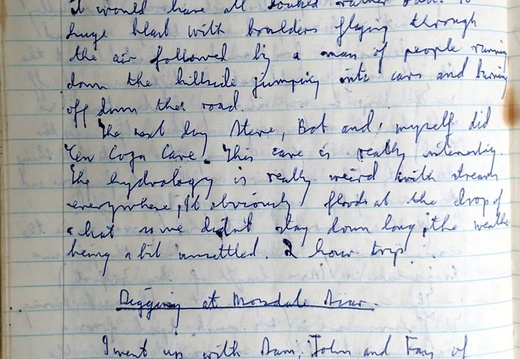 it would have all looked rather sad. A
huge blast with boulders flying through
the air followed by a mass of people running
down the hillside jumping into cars and
off down the road.
The next day Steve, Bob and myself did
Cave. This cave is really interesting
the hydrology is really weird with streams
everywhere, It obviously floods at the drop of
a hat so we didn't stay down long, the weather
being a bit unsettled. 2 hour trip.
Digging at Mossdale Scar.
I went up with John and of